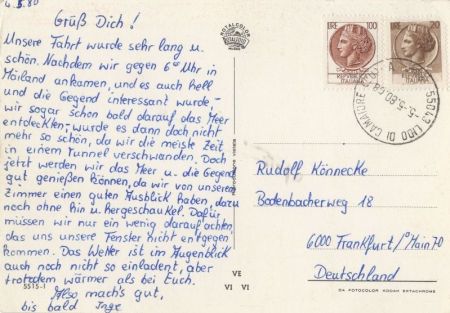 4.5.80
Grüß Dich!
Unsere Fahrt wurde sehr lang u.
schön. Nachdem wir gegen 6⁰⁰ Uhr in
Mailand ankamen, und es auch hell
und die Gegend interessant wurde,-
wir sogar schon bald darauf das Meer
entdeckten,- wurde es dann doch nicht
mehr so schön, da wir die meiste Zeit
in einem Tunnel verschwanden. Doch
jetzt werden wir das Meer u. die Gegend
gut genießen können, da wir von unserem
Zimmer einen guten Ausblick haben, dazu
noch ohne hin u. Hergeschaukel. Dafür
müssen wir nur ein wenig darauf achten,
das uns unsere Fenster nicht entgegen
kommen. Das Wetter ist im Augenblick
auch noch nicht so einladent, aber
trotzdem wärmer als bei Euch.
Also mach's gut,
bis bald Inge
5515-1
VE
VI VI
ROTALCOLOR
LIRE 100
LIRE 20
REPUBBLICA
ITALIANA
ITALIANA
55043 LIDO DI CAMAIORE
-5.5.80
Rudolf Könnecke
Bodenbacherweg 18
6000 Frankfurt/Main 70
Deutschland
DA FOTOCOLOR KODAK EKTACHROME